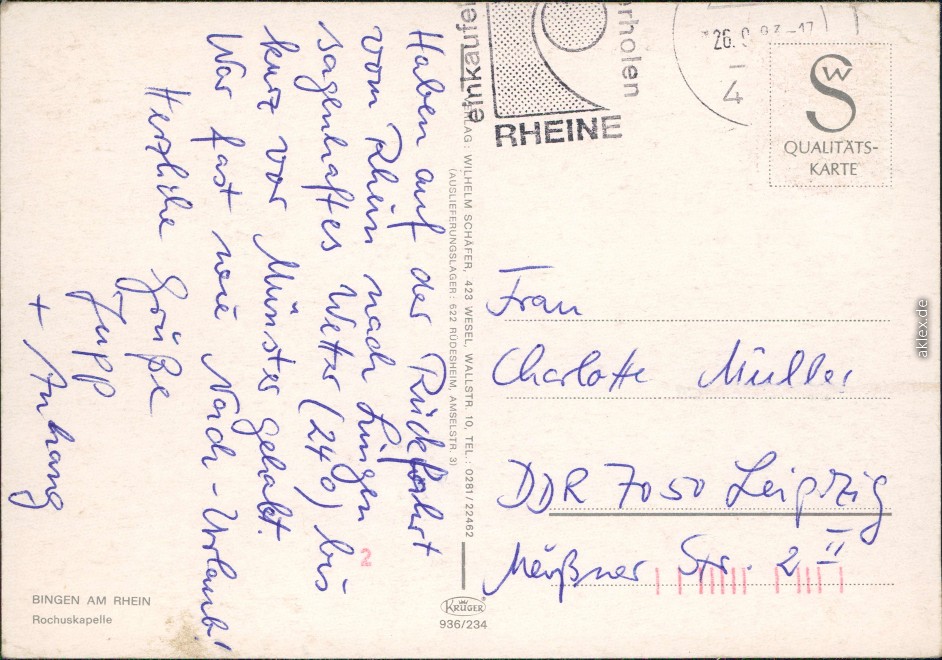 Haben auf der Rückfahrt
vom Rhein nach Lingen
sagenhaftes Wetter (24°) bis
kurz vor Münster gehabt.
War fast wie Nach-Urlaub!
Herzliche Grüße
Jupp
+ Anhang
BINGEN AM RHEIN
Rochuskapelle
VERLAG: WILHELM SCHÄFER, 423 WESEL, WALLSTR. 10, TEL.: 0281/22462
(AUSLIEFERUNGSLAGER: 622 RÜDESHEIM, AMSELSTR. 3)
KRÜGER
936/234
einkaufen
erholen
RHEINE
26. 9. 83-17
4
SW
QUALITÄTS-
KARTE
Frau
Charlotte Müller
DDR 7050 Leipzig
Meißner Str. 2 II
2
aklex.de